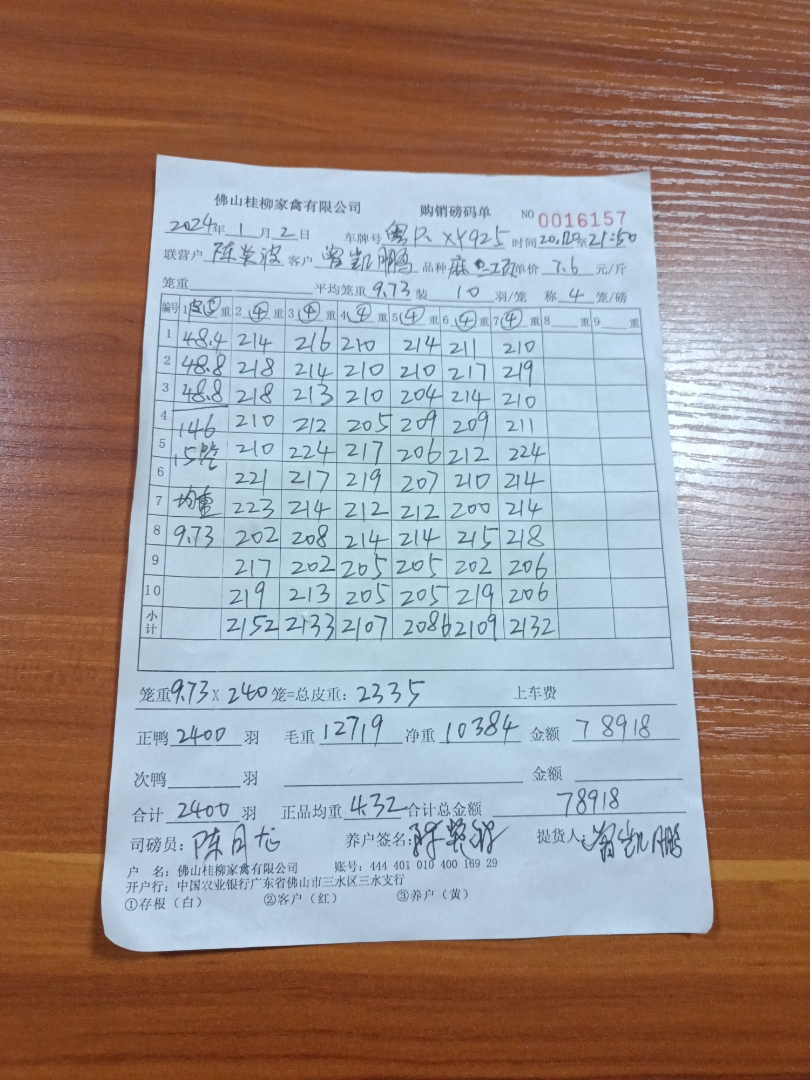 佛山桂柳家禽有限公司 购销磅码单 NO 0016157
2024年 1月 2日 车牌号 粤R XY925 时间 20:20至21:50
联营户 陈 客户 曾凯鹏 品种 麻 单价 7.6 元/斤
笼重 平均笼重 9.73 装 10 羽/笼 称 4 笼/磅
编号 1 皮 重 2 ④ 重 3 ④ 重 4 ④ 重 5 ④ 重 6 ④ 重 7 ④ 重 8 重 9 重
1 48.4 214 216 210 214 211 210
2 48.8 218 214 210 210 217 219
3 48.8 218 213 210 204 214 210
4 146 210 212 205 209 209 211
5 15笼 210 224 217 206 212 224
6 221 217 219 207 210 214
7 均重 223 214 212 212 200 214
8 9.73 202 208 214 214 215 218
9 217 202 205 205 202 206
10 219 213 205 205 219 206
小计 2152 2133 2107 2086 2109 2132
笼重 9.73 X 240 笼=总皮重: 2335 上车费
正鸭 2400 羽 毛重 12719 净重 10384 金额 78918
次鸭 羽 金额
合计 2400 羽 正品均重 4.32 合计总金额 78918
司磅员: 陈月龙 养户签名: 陈 提货人: 曾凯鹏
户 名: 佛山桂柳家禽有限公司 账号: 444 401 010 400 169 29
开户行: 中国农业银行广东省佛山市三水区三水支行
①存根(白) ②客户(红) ③养户(黄)